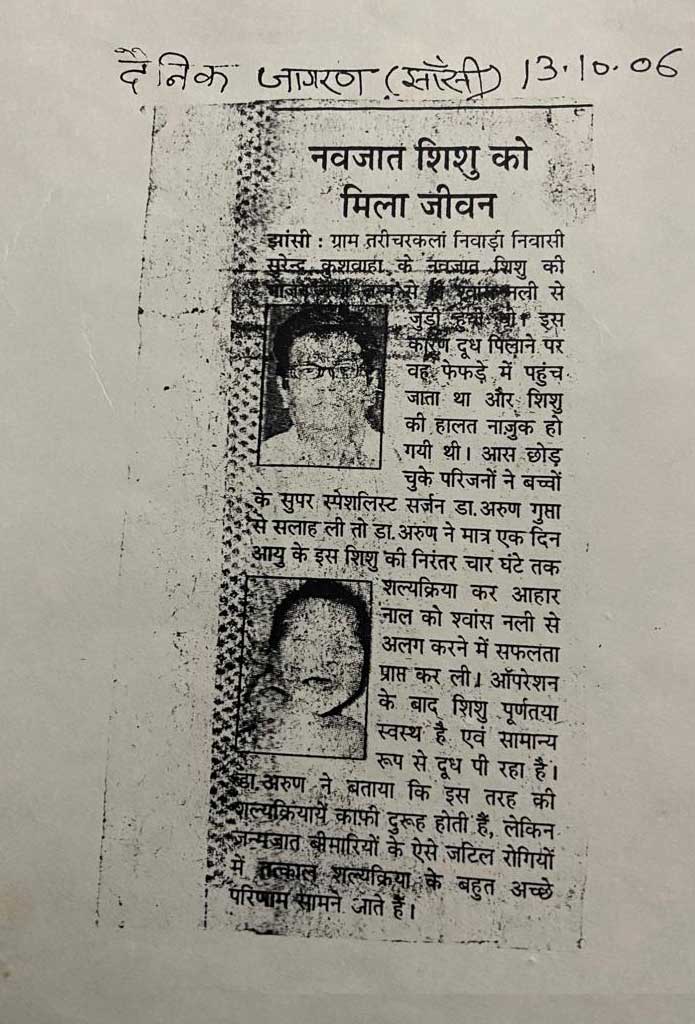 दैनिक जागरण (झाँसी) 13.10.06
नवजात शिशु को
मिला जीवन
झांसी : ग्राम तरीचरकलां निवाड़ी निवासी
सुरेन्द्र कुशवाहा के नवजात शिशु की
से ही श्वांस नली से
जुड़ी हुयी थी। इस
कारण दूध पिलाने पर
वह फेफड़े में पहुंच
जाता था और शिशु
की हालत नाजुक हो
गयी थी। आस छोड़
चुके परिजनों ने बच्चों
के सुपर स्पेशलिस्ट सर्जन डा.अरुण गुप्ता
से सलाह ली तो डा.अरुण ने मात्र एक दिन
आयु के इस शिशु की निरंतर चार घंटे तक
शल्यक्रिया कर आहार
नाल को श्वांस नली से
अलग करने में सफलता
प्राप्त कर ली। ऑपरेशन
के बाद शिशु पूर्णतया
स्वस्थ है एवं सामान्य
रूप से दूध पी रहा है।
डा.अरुण ने बताया कि इस तरह की
शल्यक्रियायें काफ़ी दुरूह होती हैं, लेकिन
जन्मजात बीमारियों के ऐसे जटिल रोगियों
में तत्काल शल्यक्रिया के बहुत अच्छे
परिणाम सामने आते हैं।